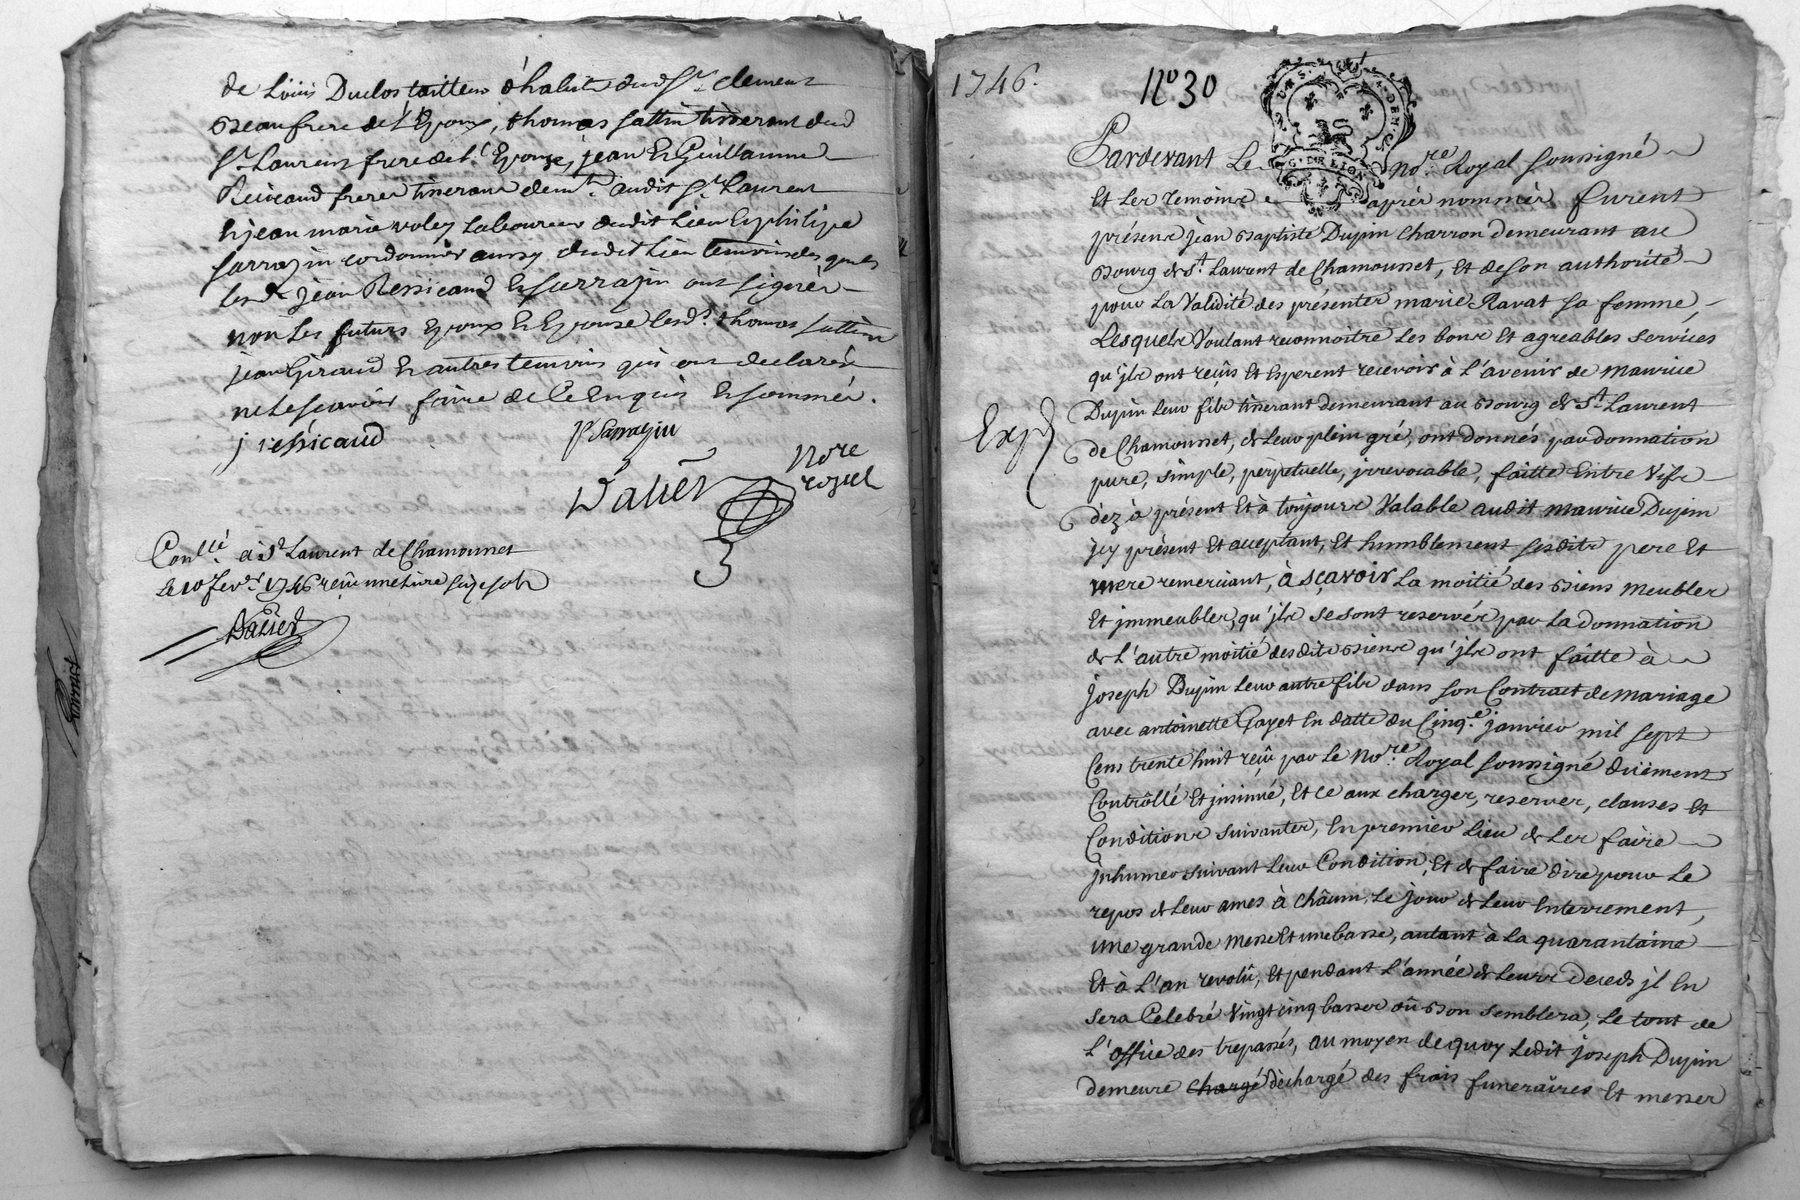 de Louis Duclos tailleur d'habits dud St. clement
Beaufrere de l'Epoux, thomas sattin tisserant dud
St. Laurent frere de la. Epouze, jean Et Guillaume
Ressicaud freres tisserans demts. audit St. Laurent
Et jean marie voley Laboureur dudit Lieu Et philipe
sarrazin cordonnier aussy dudit Lieu temoins des quels
les d. jean Ressicaud Et sarrazin ont signés
non Les futurs Epoux Et Epouze lesds. thomas sattin
jean Giraud Et autres temoins qui ont declarés
ne le scavoir faire de ce Enquis Et sommés.
j ressicaud
P Sarrazin
Dalier
Nore
royal
Conllé à St Laurent de Chamousset
Le 10 fevr. 1746 reçu une Livre
Dalier
1746.
No 30
G. DE LION
Pardevant Le Nore. Royal soussigné
Et Les temoins cy après nommés furent
présens jean Baptiste Dupin Charron demeurant au
Bourg de St. Laurent de Chamousset, Et de son authorité
pour La Validité des présentes marie Ravat sa femme,
Lesquels Voulant reconnoitre Les bons Et agreables services
qu'jls ont reçûs Et Esperent recevoir à L'avenir de maurice
Dupin leur fils tisserant demeurant au Bourg de St. Laurent
Expd
de Chamousset, de leur plein gré, ont donnés par donnation
pure, simple, perpetuelle, jrrevocable, faitte Entre Vifs
dez à présent Et à toujours Valable audit maurice Dupin
jcy présent Et acceptant, Et humblement sesdits pere Et
mere remerciant, à sçavoir La moitié des Biens meubles
Et jmmeubles, qu'jls se sont reservés par La donnation
de L'autre moitié desdits Biens qu'jls ont faitte à
joseph Dupin leur autre fils dans son Contract de mariage
avec antoinette Gayet En datte du Cinqe. janvier mil sept
Cens trente huit reçû par Le Nore. Royal soussigné düement
Contrôllé Et jnsinué, Et ce aux charges, reserves, clauses Et
Conditions suivantes, En premier Lieu de Les faire
jnhumer suivant Leur Condition, Et de faire dire pour Le
repos de Leur ames à châcun, Le jour de Leur Enterrement,
une grande messe Et une basse, autant à La quarantaine
Et à L'an revolû, Et pendant L'année de Leurs decèds jl En
sera Celebré Vingt cinq basses où Bon semblera, Le tout de
L'office des trepassés, au moyen de quoy Ledit joseph Dupin
demeure chargé dèchargé des frais funeraires Et messes